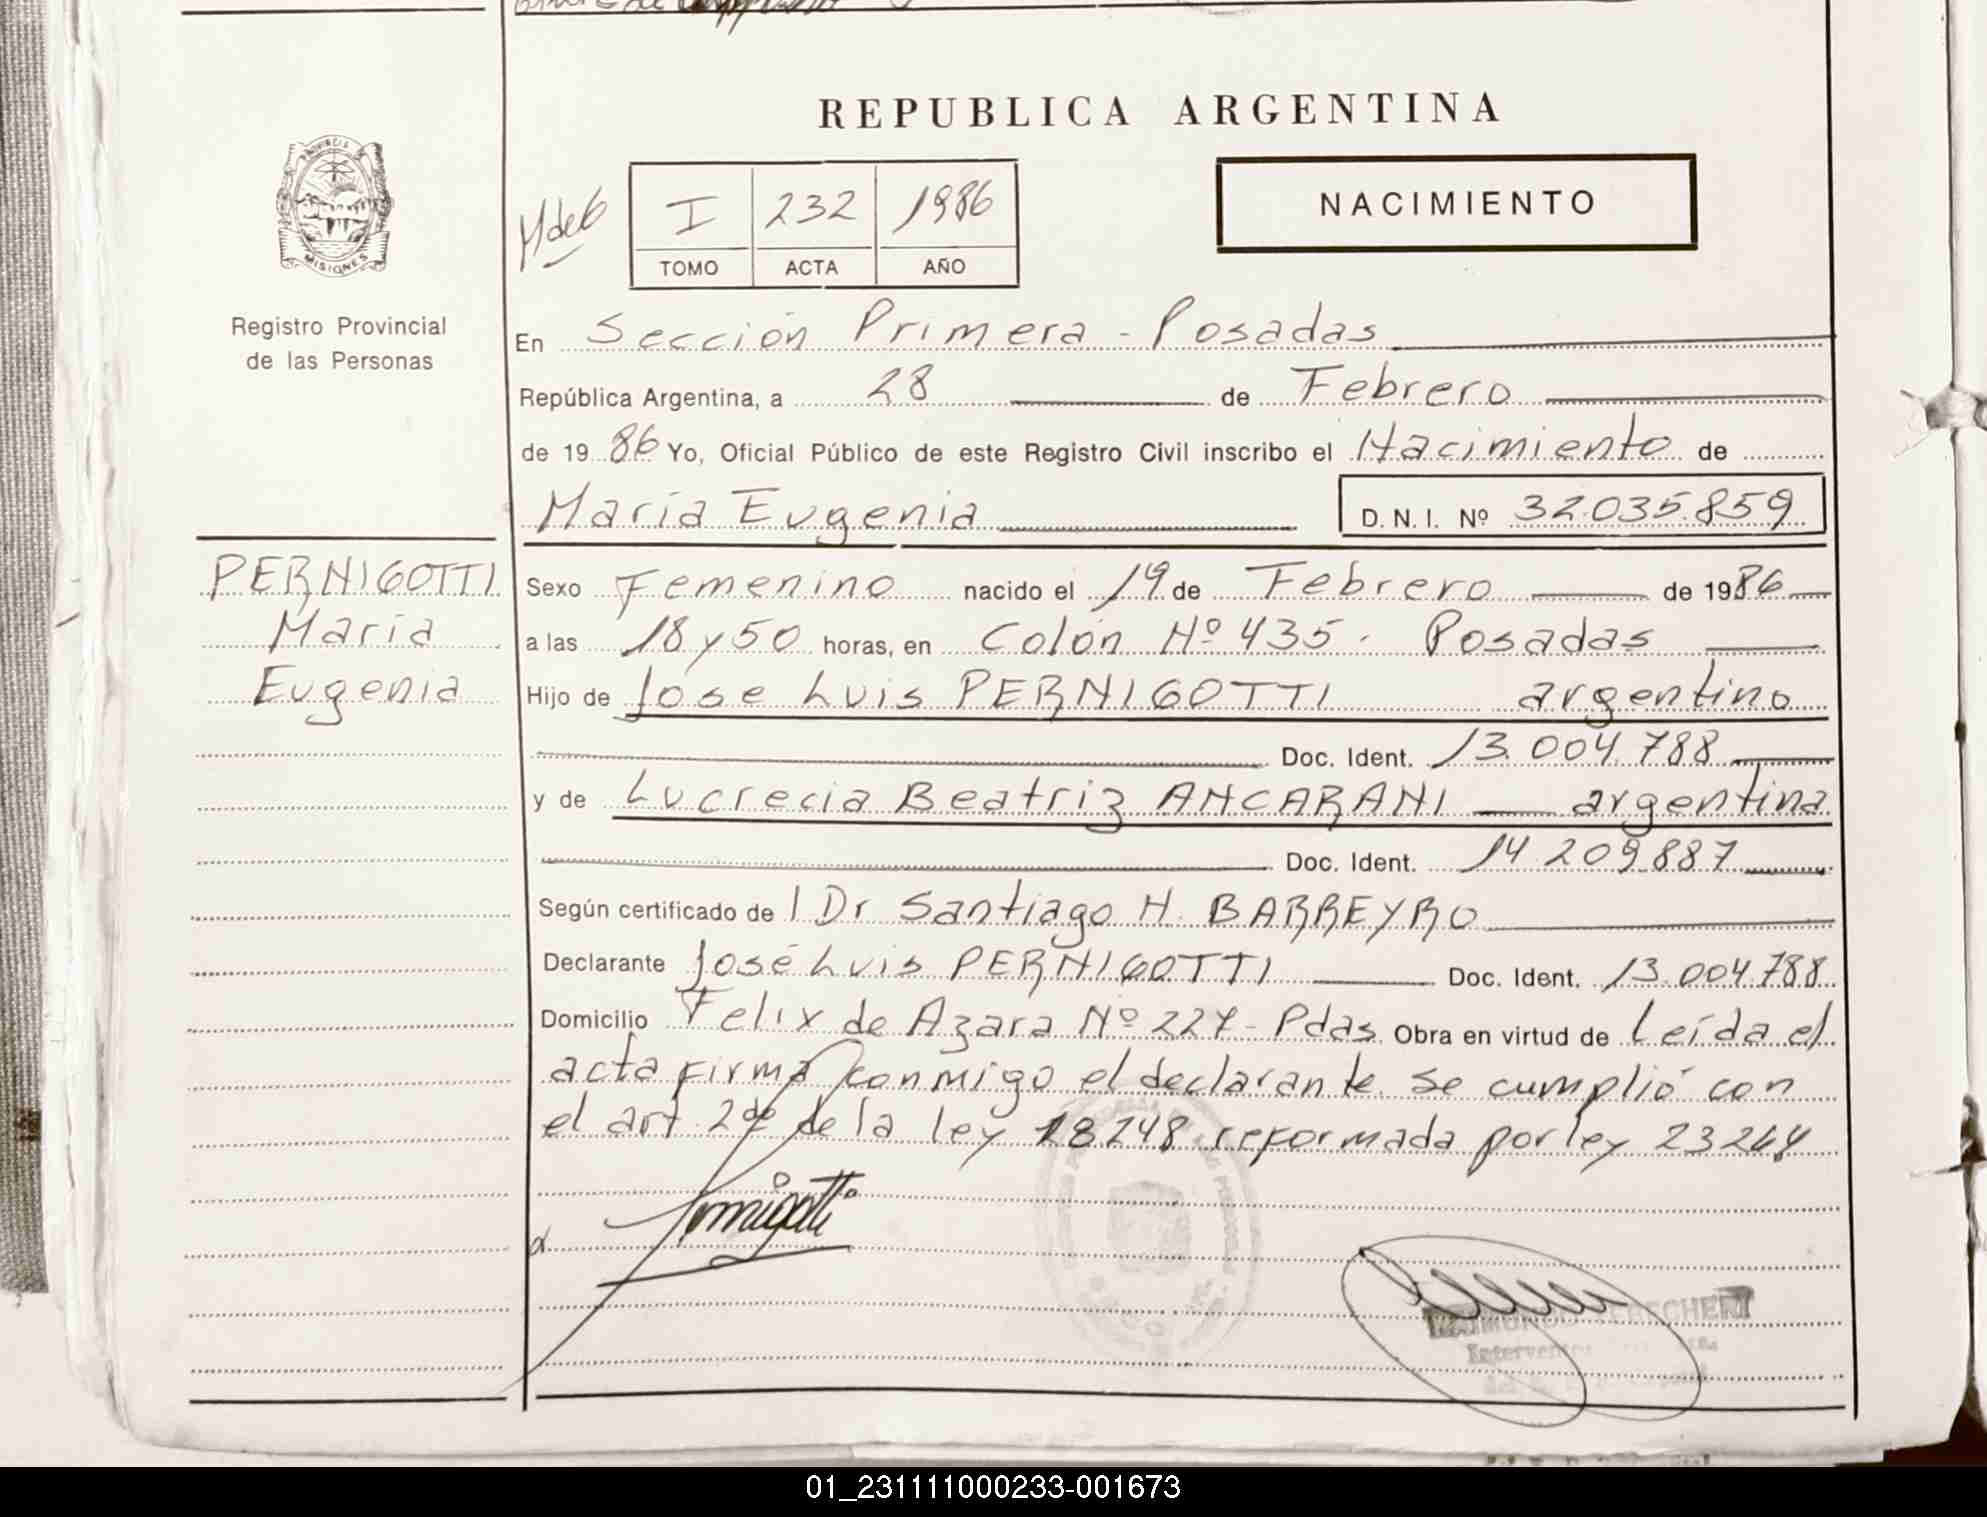 REPUBLICA ARGENTINA
PROVINCIA DE
MISIONES
Registro Provincial
de las Personas
I 232 1986
TOMO ACTA AÑO
NACIMIENTO
En Sección Primera - Posadas
República Argentina, a 28 de Febrero
de 1986 Yo, Oficial Público de este Registro Civil inscribo el Nacimiento de
María Eugenia D.N.I. Nº 32.035.859
PERNIGOTTI
María
Eugenia
Sexo Femenino nacido el 19 de Febrero de 1986
a las 18 y 50 horas, en Colón Nº 435 - Posadas
Hijo de Jose Luis PERNIGOTTI argentino
Doc. Ident. 13.004.788
y de Lucrecia Beatriz ANCARANI argentina
Doc. Ident. 14.209.887
Según certificado de l Dr Santiago H. BARREYRO
Declarante José Luis PERNIGOTTI Doc. Ident. 13.004.788
Domicilio Felix de Azara Nº 227 - Pdas. Obra en virtud de Leída el
acta firma conmigo el declarante. Se cumplió con
el art. 2do de la ley 18248 reformada por ley 23264
Pernigotti
01_231111000233-001673